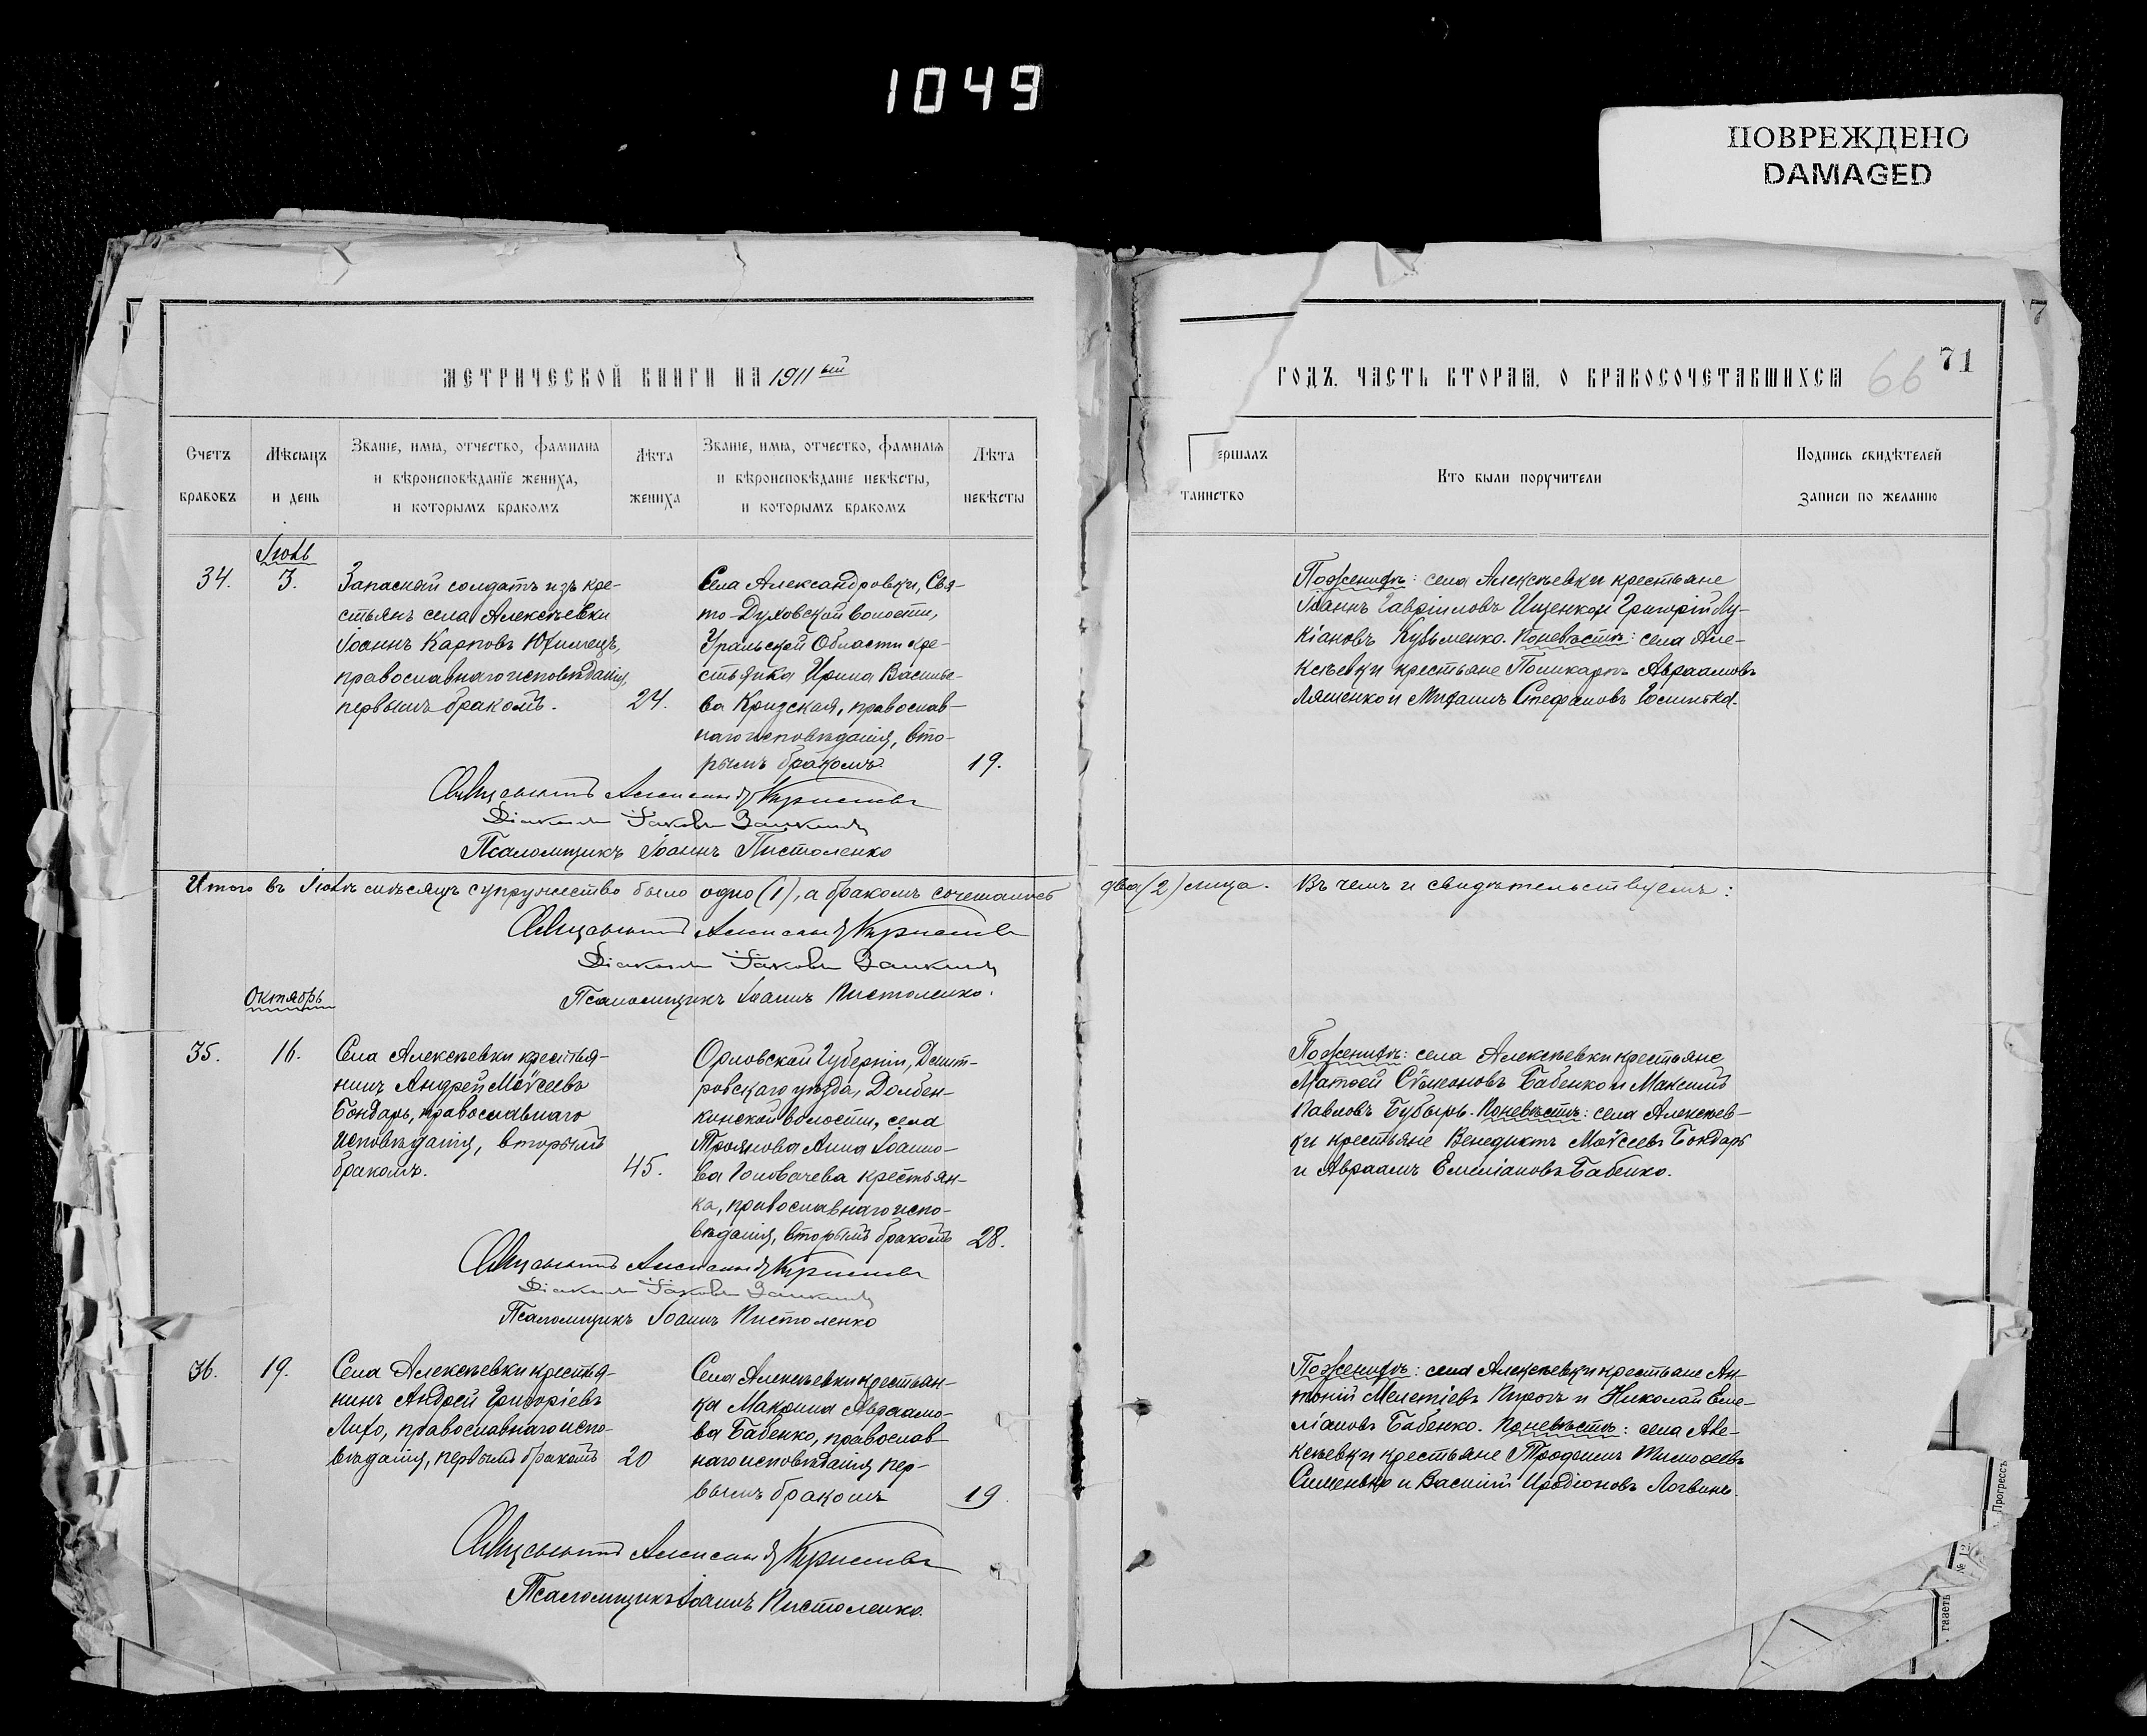 1049
ПОВРЕЖДЕНО
DAMAGED
7
МЕТРИЧЕСКОЙ КНИГИ НА 1911ый
ГОДЪ, ЧАСТЬ ВТОРАЯ, О БРАКОСОЧЕТАВШИХСЯ 66 71
Счетъ браковъ
Мѣсяцъ и день
Званіе, имя, отчество, фамилія
и вѣроисповѣданіе жениха,
и которымъ бракомъ
Лѣта жениха
Званіе, имя, отчество, фамилія
и вѣроисповѣданіе невѣсты,
и которымъ бракомъ
Лѣта невѣсты
ершалъ
таинство
Кто были поручители
Подпись свидѣтелей
записи по желанію
34.
Іюль
3.
Запасный солдатъ изъ кре-
стьянъ села Алексѣевки
Іоаннъ Карповъ
православнаго исповѣданія,
первымъ бракомъ.
24.
Села Александровки, Свя-
то-Духовской волости,
Уральской Области кре-
стьянка Ирина Василье-
ва православ-
наго исповѣданія, вто-
рымъ бракомъ.
19.
По женихѣ: села Алексѣевки крестьяне
Іоаннъ Гавріиловъ Ищенко и Григорій Лу-
кіановъ Кузьменко. По невѣстѣ: села Але-
ксѣевки крестьяне Поликарпъ Авраамовъ
Ляшенко и Стефановъ
Діаконъ Іаковъ
Псаломщикъ Іоаннъ Пистоленко
Итого въ Іюлѣ мѣсяцѣ супружество было одно (1), а бракомъ сочеталось два (2) лица. Въ чемъ и свидѣтельствуемъ:
Діаконъ Іаковъ
Псаломщикъ Іоаннъ Пистоленко.
Октябрь
35.
16.
Села Алексѣевки крестья-
нинъ Андрей Моѵсеевъ
Бондарь, православнаго
исповѣданія, вторымъ
бракомъ.
45.
Орловской Губерніи, Дмит-
ровскаго уѣзда, Долбен-
кинской волости, села
Троянова Анна Іоанно-
ва Головачева крестьян-
ка, православнаго испо-
вѣданія, вторымъ бракомъ
28.
По женихѣ: села Алексѣевки крестьяне
Матѳей Сѵмеоновъ Бабенко и Максимъ
Павловъ Бубырь. По невѣстѣ: села Алексѣев-
ки крестьяне Венедиктъ Моѵсеевъ Бондарь
и Авраамъ Емиліановъ Бабенко.
Діаконъ Іаковъ
Псаломщикъ Іоаннъ Пистоленко
36.
19.
Села Алексѣевки крестья-
нинъ Андрей Григоріевъ
Лихо, православнаго испо-
вѣданія, первымъ бракомъ
20
Села Алексѣевки крестьян-
ка Макрина Авраамо-
ва Бабенко, православ-
наго исповѣданія, пер-
вымъ бракомъ
19.
По женихѣ: села Алексѣевки крестьяне Ан-
тоній Мелетіевъ Пирогъ и Николай Еме-
ліановъ Бабенко. По невѣстѣ: села Але-
ксѣевки крестьяне Трофимъ Тимоѳеевъ
Сименько и Василій Иродіоновъ Логвинъ.
Псаломщикъ Іоаннъ Пистоленко.
Прогрессъ
газеты